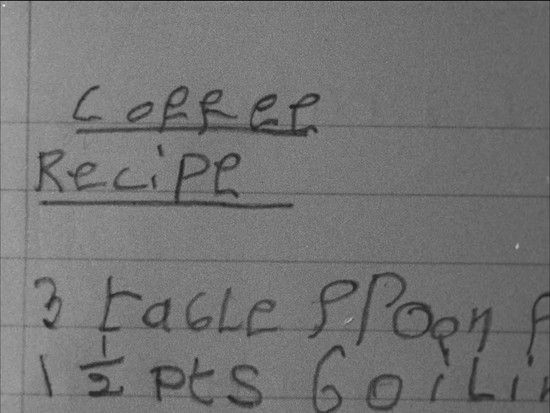 Coffee
Recipe
3 table spoon
1 1/2 pts boilin